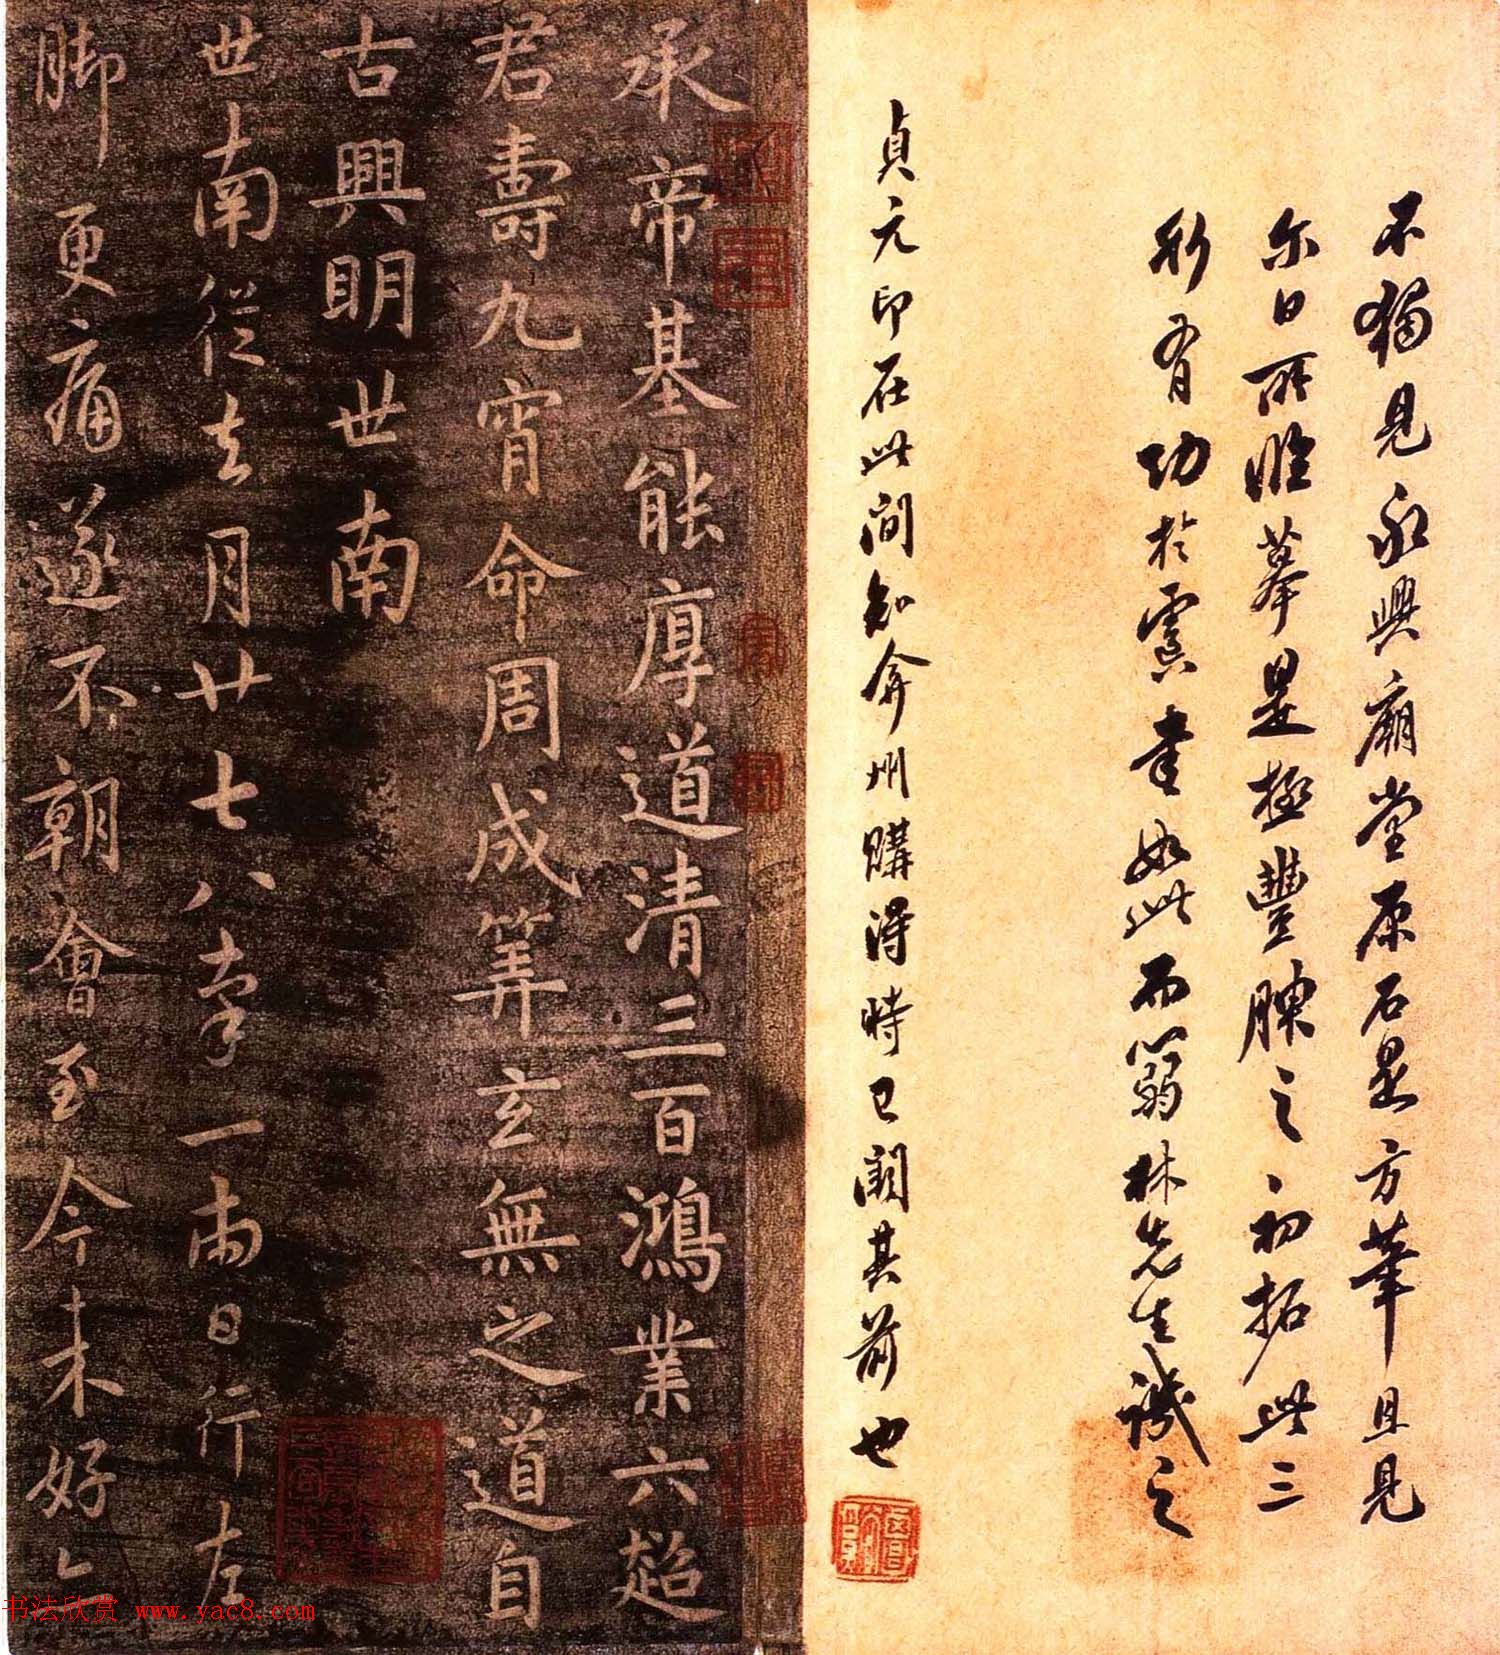 不獨見永興廟堂原石是方筆且見
尔日所临摹是極豐腴之初拓此三
行有功於虞書如此而翁林先生識之
貞元印在此間知弇州購得時已闕其前也
承帝基能厚道清三百鴻業六超
君壽九霄命周成筭玄無之道自
古興明世南
世南從去月廿七八率一兩日行左
脚更痛遂不朝會至今未好亦
书法欣赏 www.yac8.com